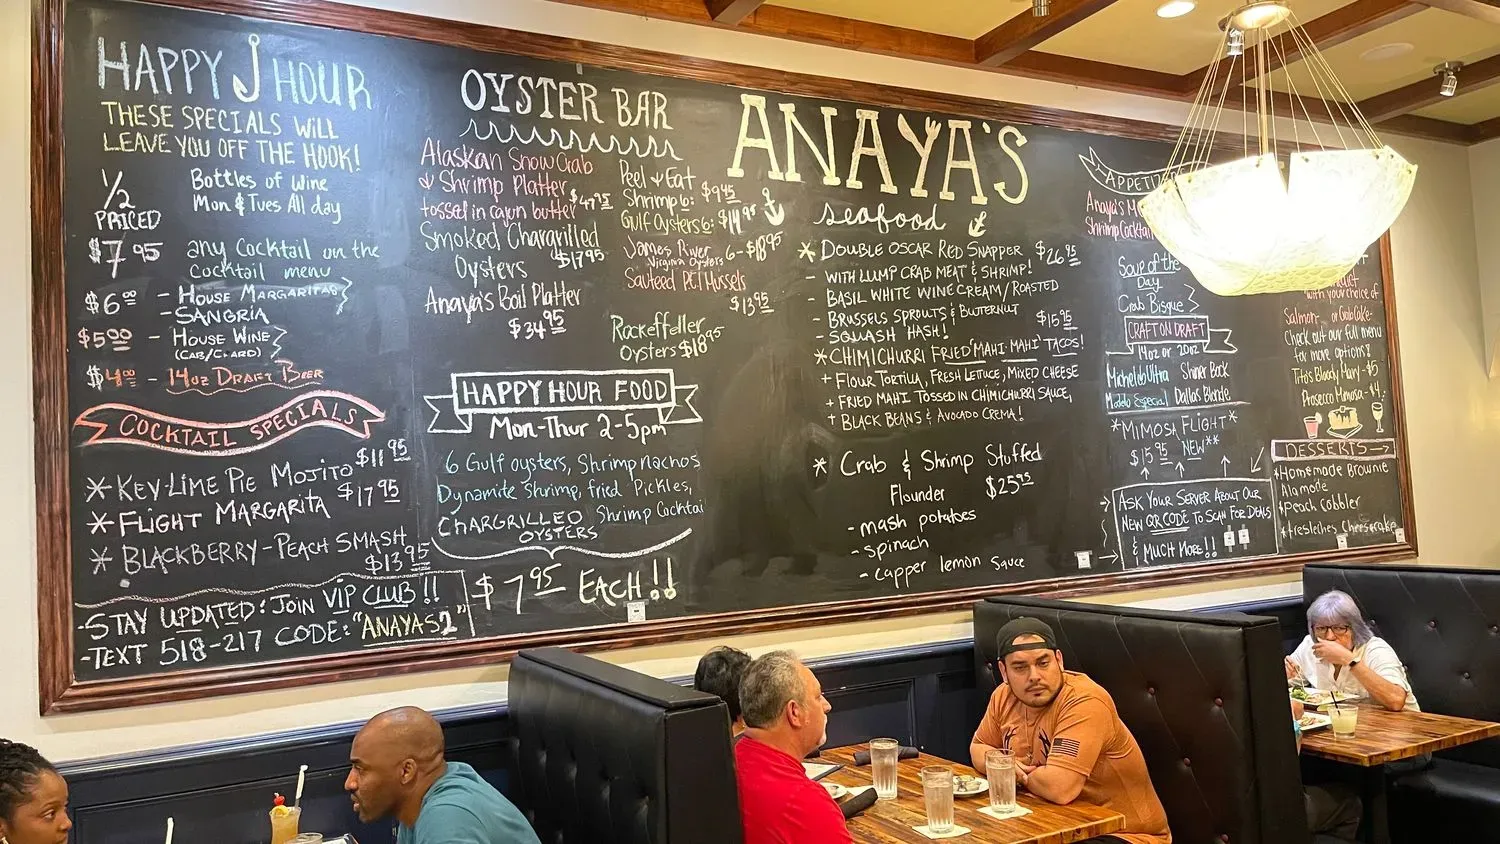 HAPPY HOUR
THESE SPECIALS WILL
LEAVE YOU OFF THE HOOK!
1/2
PRICED
Bottles of Wine
Mon & Tues All day
$7.95 any Cocktail on the
Cocktail menu
$6.00 - House Margaritas
- SANGRIA
$5.00 - House Wine
(CAB/CHARD)
$4.00 - 14oz Draft Beer
COCKTAIL SPECIALS
* KEY-LIME PIE MOJITO $11.95
* FLIGHT MARGARITA $17.95
* BLACKBERRY-PEACH SMASH
$13.95
-STAY UPDATED: JOIN VIP CLUB!!
-TEXT 518-217 CODE: "ANAYAS2"
OYSTER BAR
Alaskan Snow Crab
& Shrimp Platter
tossed in cajun butter $49.95
Smoked Chargrilled
Oysters $17.95
Anaya's Boil Platter
$34.95
Peel & Eat
Shrimp 6: $9.45
Gulf Oysters 6: $14.95
James River
Virginia Oysters 6-$18.95
Sauteed PEI Mussels
$13.95
Rockeffeller
Oysters $18.95
HAPPY HOUR FOOD
Mon-Thur 2-5pm
6 Gulf oysters, Shrimp nachos,
Dynamite Shrimp, fried Pickles,
CHARGRILLED Shrimp Cocktail
OYSTERS
$7.95 EACH!!
ANAYA'S
seafood
* DOUBLE OSCAR RED SNAPPER $26.95
- WITH LUMP CRAB MEAT & SHRIMP!
- BASIL WHITE WINE CREAM/ROASTED
- BRUSSELS SPROUTS & BUTTERNUT
- SQUASH HASH! $15.95
* CHIMICHURRI FRIED "MAHI-MAHI" TACOS!
+ FLOUR TORTILLA, FRESH LETTUCE, MIXED CHEESE
+ FRIED MAHI TOSSED IN CHIMICHURRI SAUCE,
+ BLACK BEANS & AVOCADO CREMA!
* Crab & Shrimp Stuffed
Flounder $25.95
- mash potatoes
- spinach
- capper lemon sauce
Anaya's
Shrimp Cocktail
Soup of the
Day
Crab Bisque
CRAFT ON DRAFT
14oz or 20oz
Michelob Ultra Shiner Bock
Modelo Especial Dallas Blonde
*MIMOSA FLIGHT*
$15.95 NEW**
ASK YOUR SERVER ABOUT OUR
NEW QR CODE TO SCAN FOR DEALS
& MUCH MORE!!
with your choice of
Salmon- or Crab Cake-
Check out our full menu
for more options!
Tito's Bloody Mary-$5
Prosecco Mimosa-$4.
DESSERTS
*Homemade Brownie
Alamode
*Peach Cobbler
*Tresleches Cheesecake